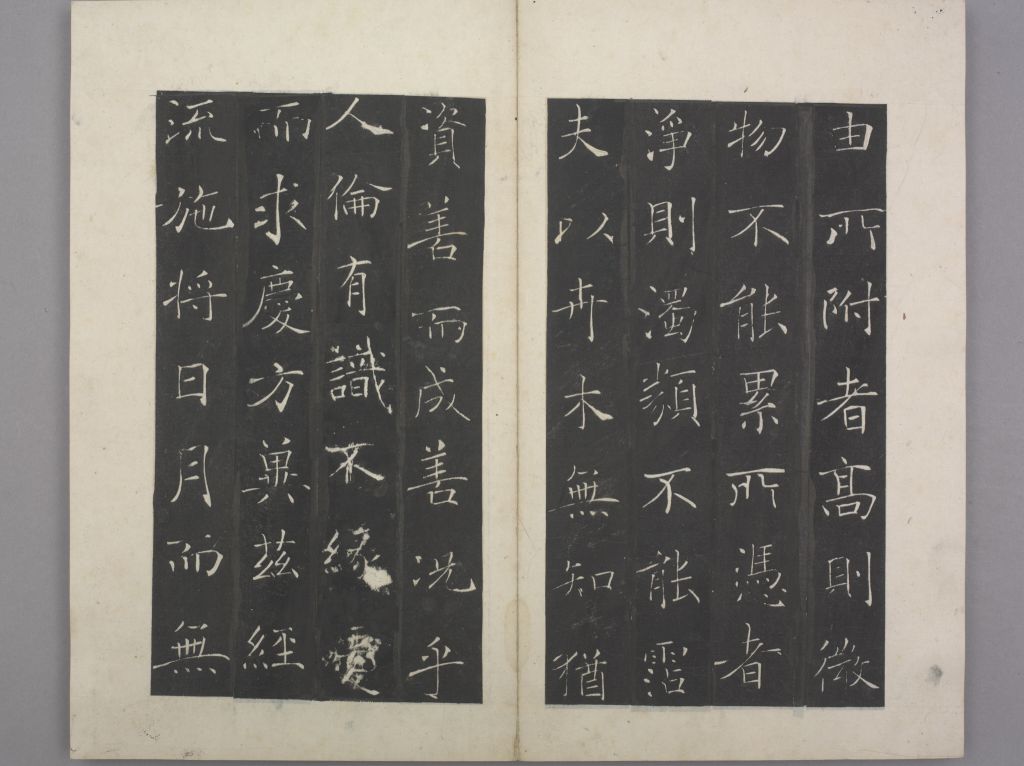 由所附者髙則微
物不能累所憑者
淨則濁類不能霑
夫以卉木無知猶
資善而成善況乎
人倫有識不緣慶
而求慶方冀茲經
流施將日月而無